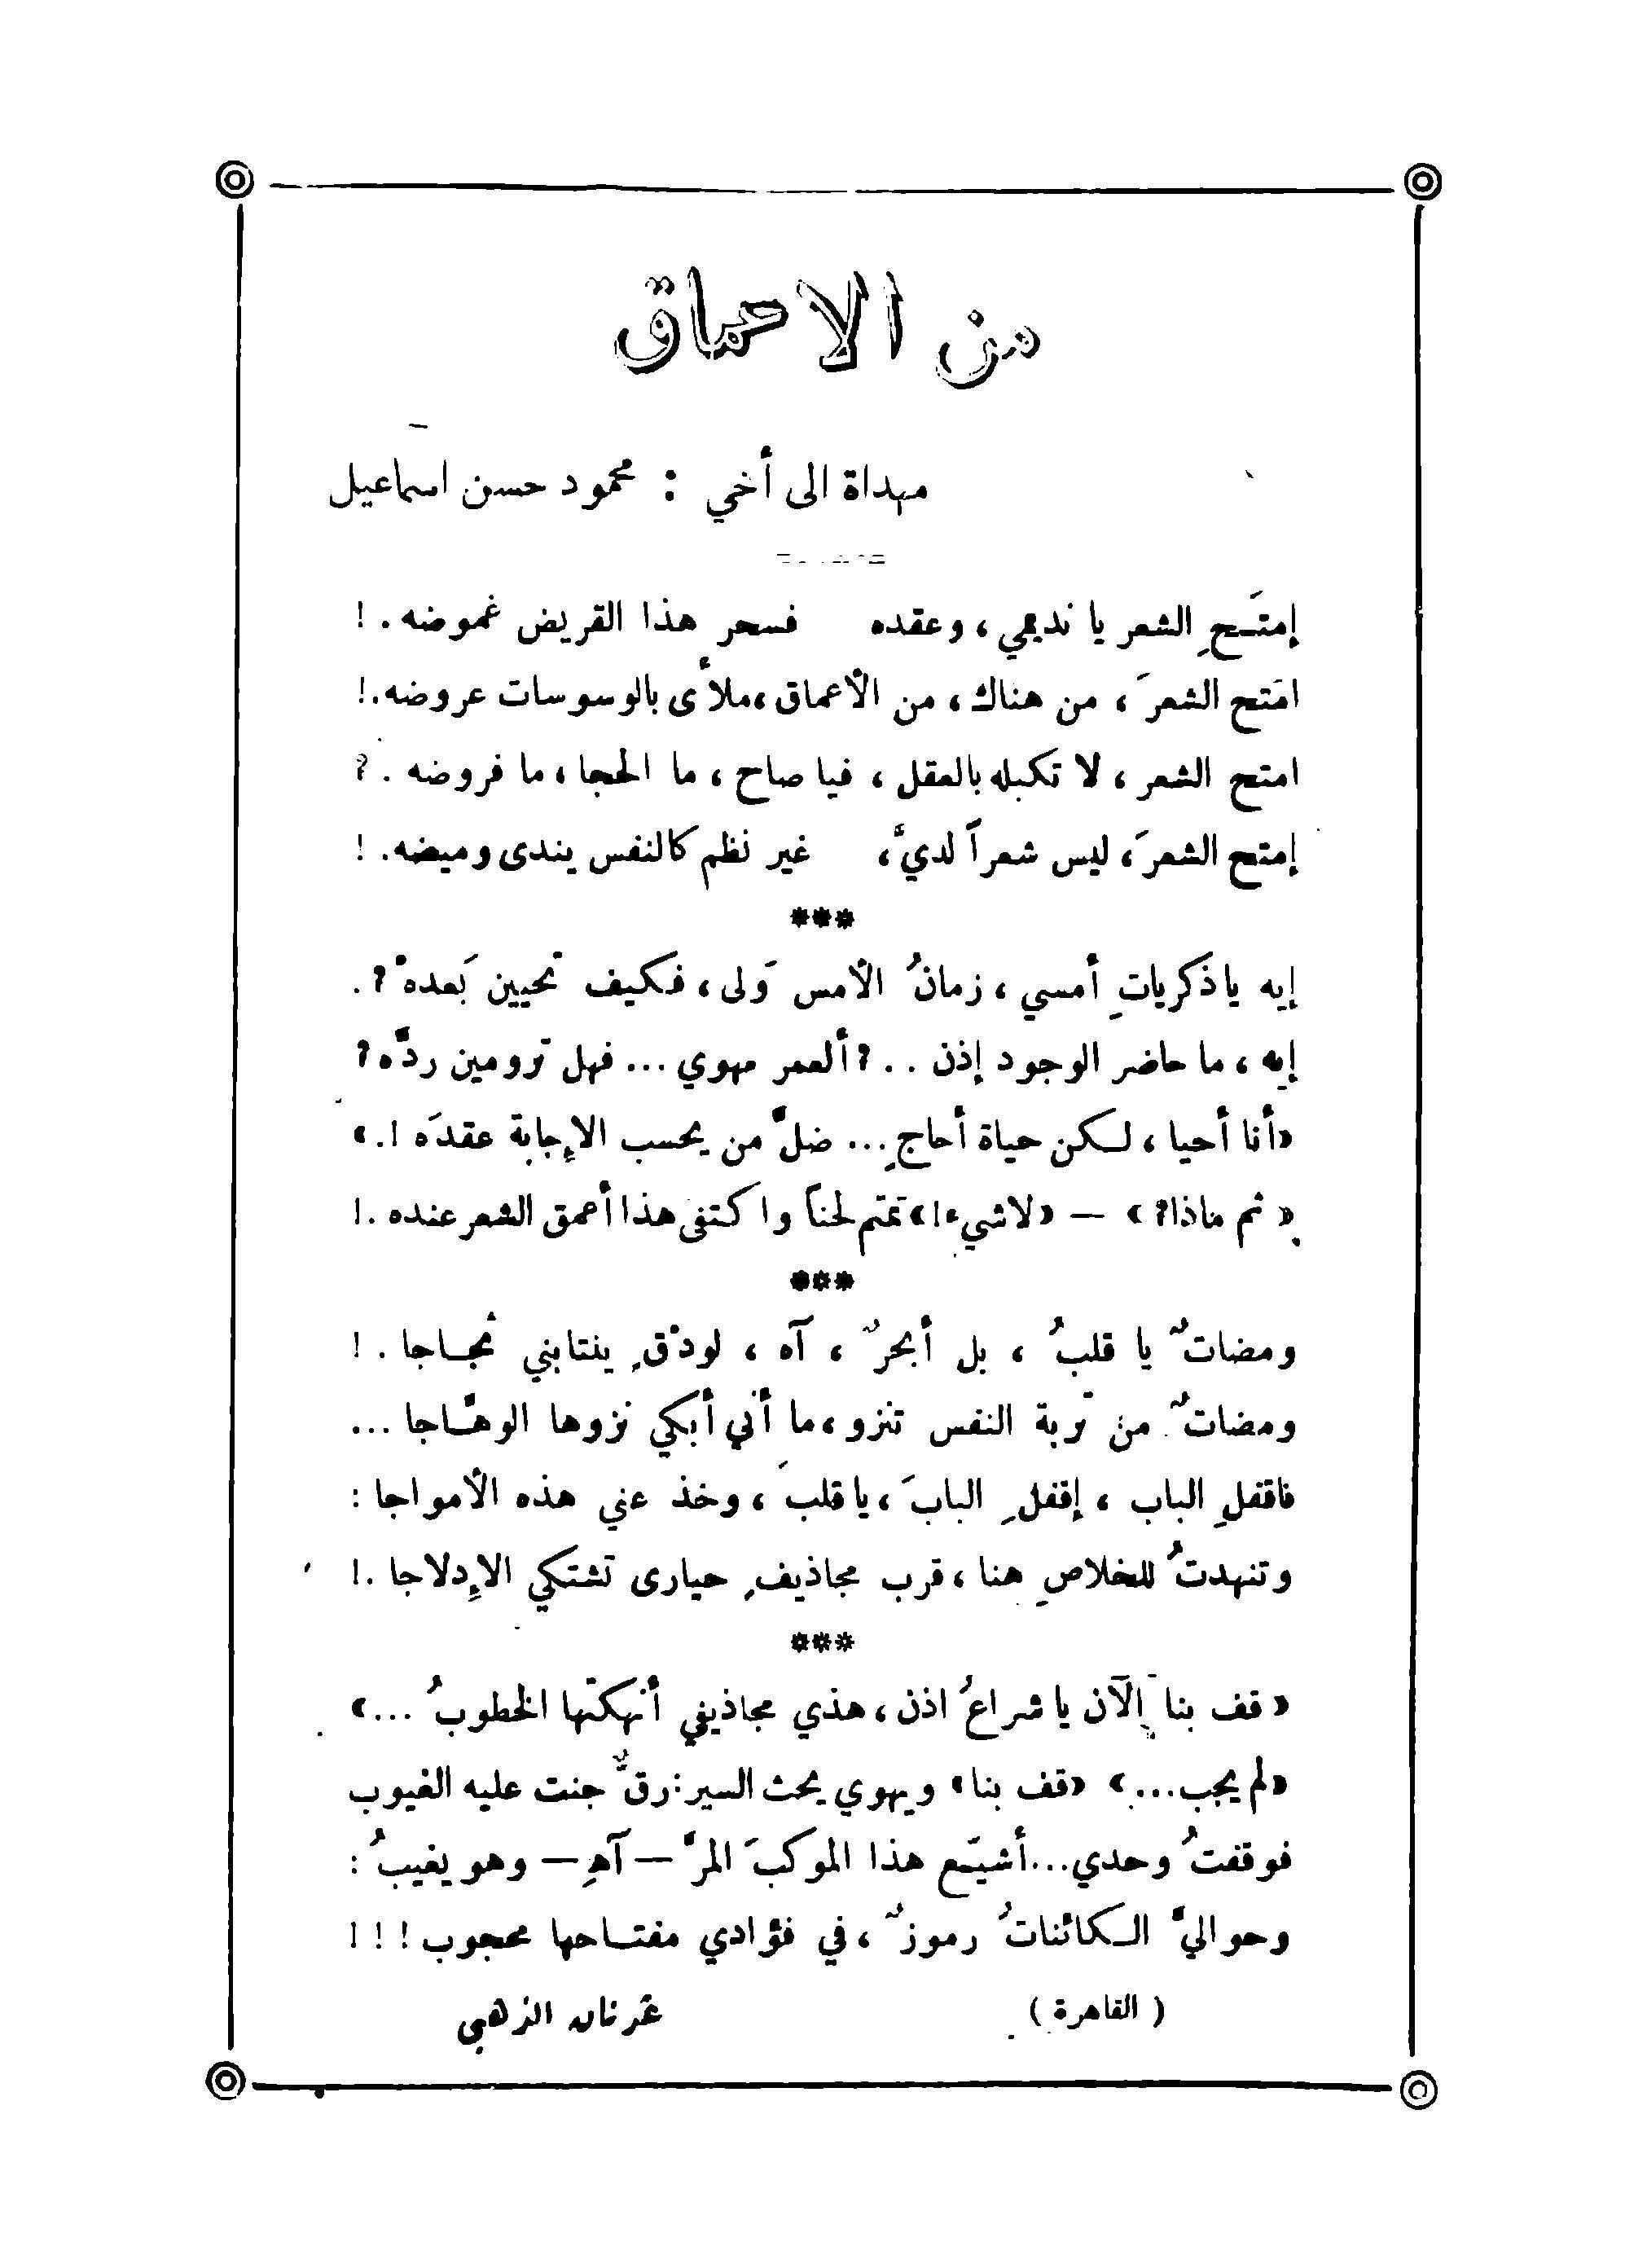 من الاعماق
مهداة الى أخي : محمود حسن اسماعيل
إمتَـحِ الشعر يا نديمي ، وعقده فسحر هذا القريض غموضه . !
امَتح الشعرَ ، من هناك ، من الأعماق ، ملأى بالوسوسات عروضه . !
امتح الشعر ، لا تكبله بالعقل ، فيا صاح ، ما الحجا ، ما فروضه . ؟
إمتح الشعرَ ، ليس شعراً لديَّ ، غير نظم كالنفس يندى وميضه . !
***
إيه يا ذكرياتِ أمسي ، زمانُ الأمس وَلى ، فكيف تَحيين بَعدهْ ؟ .
إيه ، ما حاضر الوجود إذن . . ؟ ألعمر مهوي ... فهل تَرومين ردَّه ؟
«أنا أحيا ، لـكن حياة أحاجٍ ... ضلَّ من يحسب الإجابة عقدَه ! .»
« ثم ماذا؟ » — «لاشيء!» تمتم لحناً واكتفى هذا أعمق الشعر عنده . !
***
ومضاتٌ يا قلبُ ، بل أبحرٌ ، آه ، لودْقٍ ينتابني ثُجـاجا . !
ومضاتٌ من تَربة النفس تنزو ، ما أني أبكي نزوها الوهَّـاجا ...
فاقفلِ الباب ، إقفلِ البابَ ، يا قلبَ ، وخذ عني هذه الأمواجا :
وتنهدتُ للخلاصِ هنا ، قرب مجاذيفٍ حيارى تَشتكي الإدلاجا . !
***
« قف بنا الآن يا شراعُ اذن ، هذي مجاذيفي أنهكتَها الخطوبُ ... »
«لم يجب ... » «قف بنا» ويهوي يحث السير : رقٌّ جنت عليه الغيوب
فوقفتُ وحدي ... أشيّـع هذا الموكبَ المرَّ — آهِ — وهو يغيبُ :
وحواليَّ الـكائناتُ رموزٌ ، في فؤادي مفتـاحها محجوب ! ! !
( القاهرة ) عدنان الذهبي